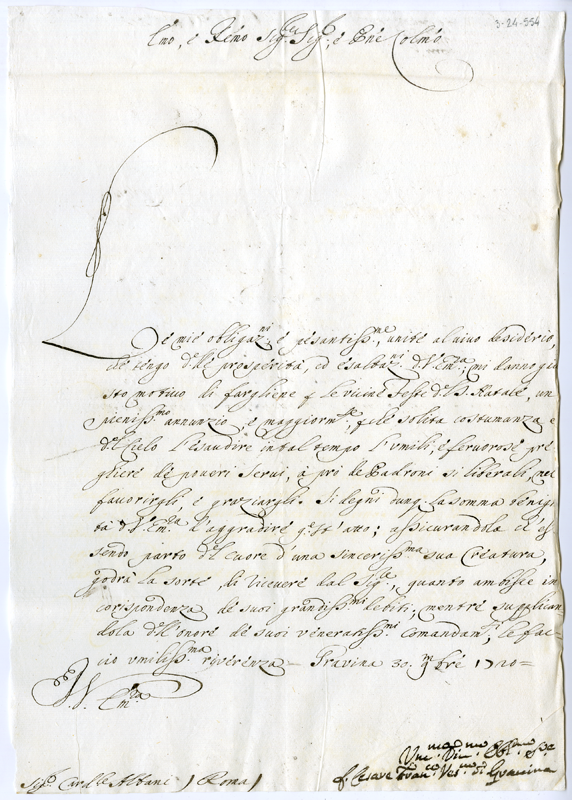 3-24-554
Emo, e Rēmo Sig.re Sig.r, e Pne Colmo
Le mie obligaz.ni, e pesantiss.me, unite al vivo desiderio,
che tengo d.lle prosperità, ed esaltaz.ni d. V. Em.za, mi danno giu
sto motivo di fargliene p. le vicine feste d. S. Natale, un
pieniss.mo annunzio, e maggiorm.te, p.chè solita costumanza è
d.l Cielo l'esaudire in tal tempo l'umili, e fervorose pre
ghiere de poveri servi, a prò de Padroni si liberali, nel
favorirgli, e graziargli. Si degni dunq. la somma benigni
tà d. V. Em.za d'aggradire q.st'atto; assicurandola, ch'es
sendo parto d.l cuore d'una sinceriss.ma sua Creatura,
godrà la sorte, di ricevere dal Sig.re, quanto ambisce in
corispondenza de suoi grandiss.mi debiti; mentre supplican
dola d.ll'onore de suoi veneratiss.mi comandam.ti, le fac
cio umiliss.ma riverenza = Gravina 30. 9mbre 1720=
D. V. Em.za
Sig.r Card.le Albani ) Roma )
Um.mo Div.mo Obl.mo
f. Cesare Fran.co Ves.vo di Gravina